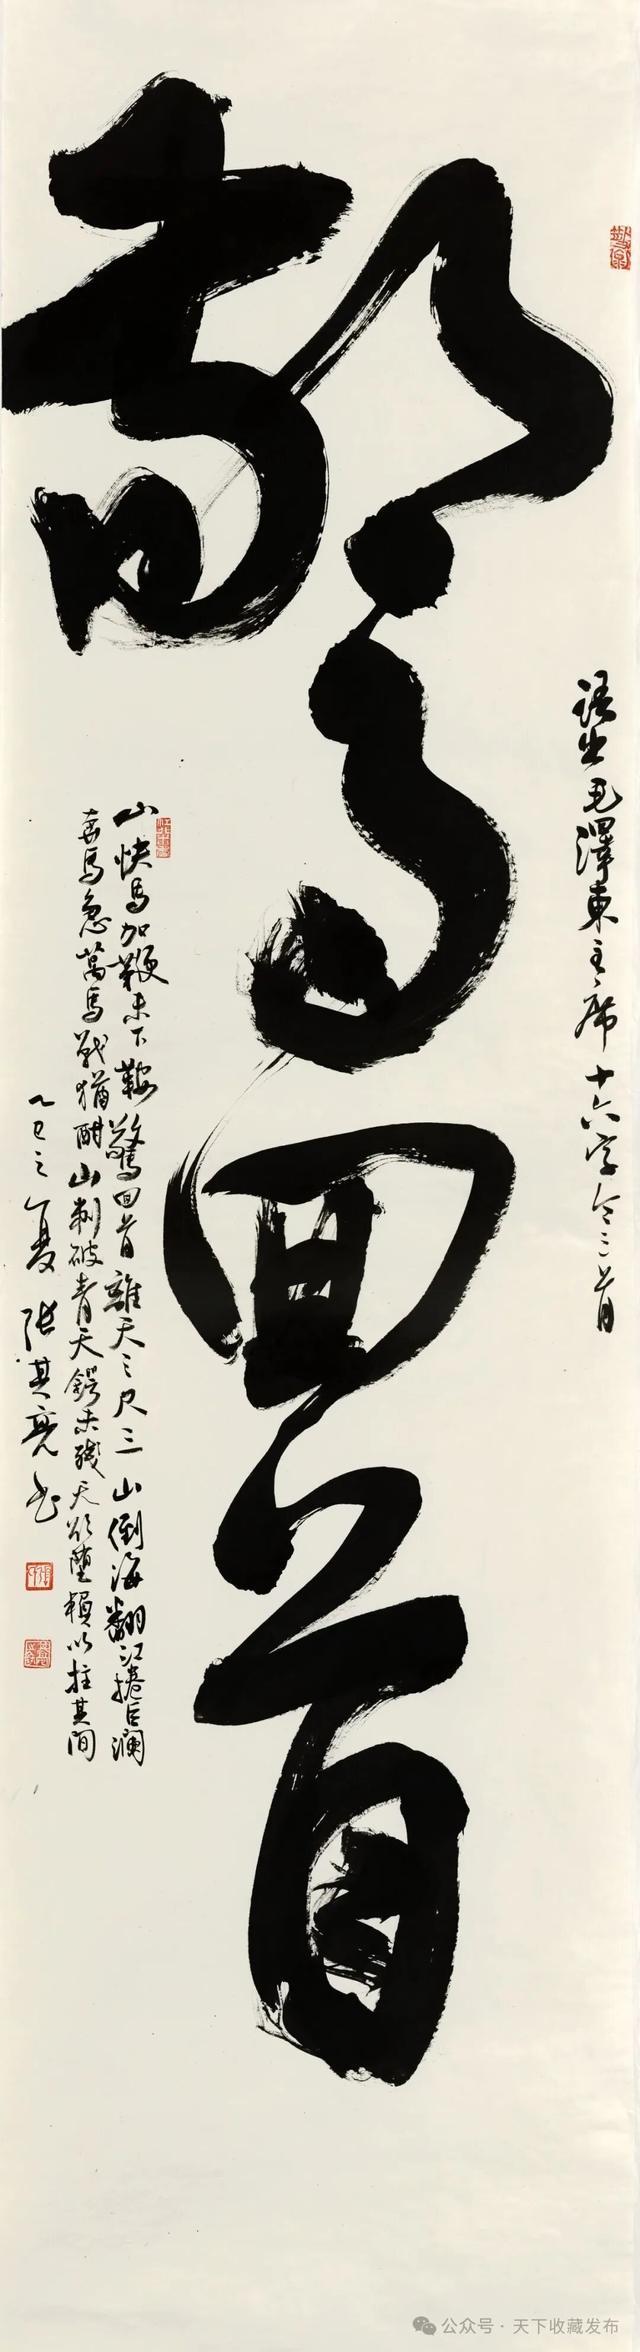 語出毛澤東主席十六字令三首
驚回首
山快馬加鞭未下鞍驚回首離天三尺三山倒海翻江捲巨瀾
奔馬急萬馬戰猶酣山刺破青天鍔未殘天欲墮賴以拄其間
乙巳之夏張其亮書
公众号 · 天下收藏发布